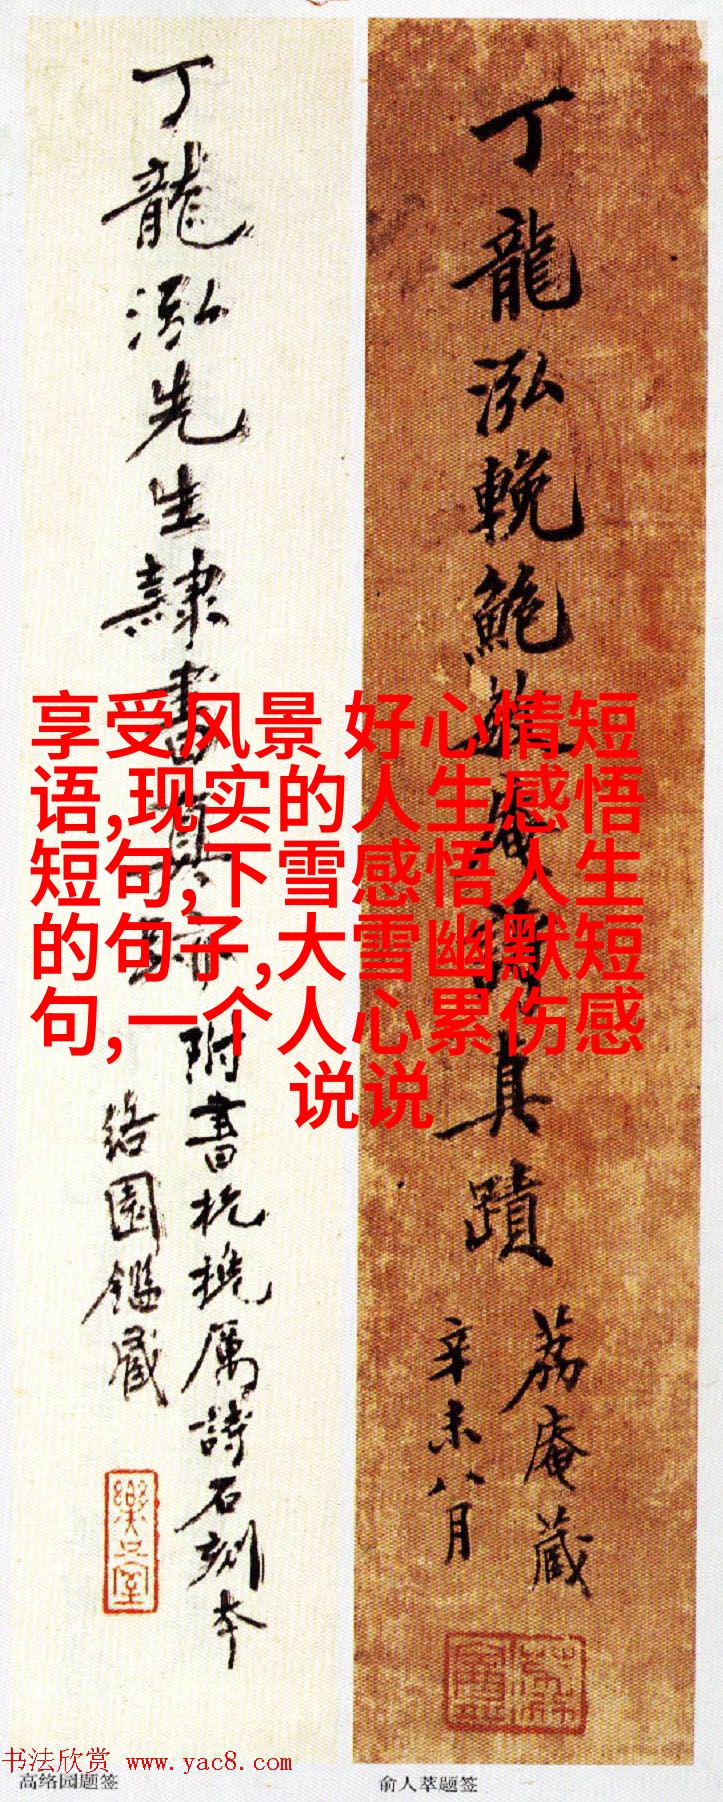 丁龍泓先生隸書真跡
附書杭搋厲詩石刻本
绤園鑑藏
丁龍泓輓鮑
真蹟
荔庵藏
辛未八月
享受风景 好心情短
语,现实的人生感悟
短句,下雪感悟人生
的句子,大雪幽默短
句,一个人心累伤感
说说
书法欣赏 www.yac8.com
高络园题签
俞人萃题签